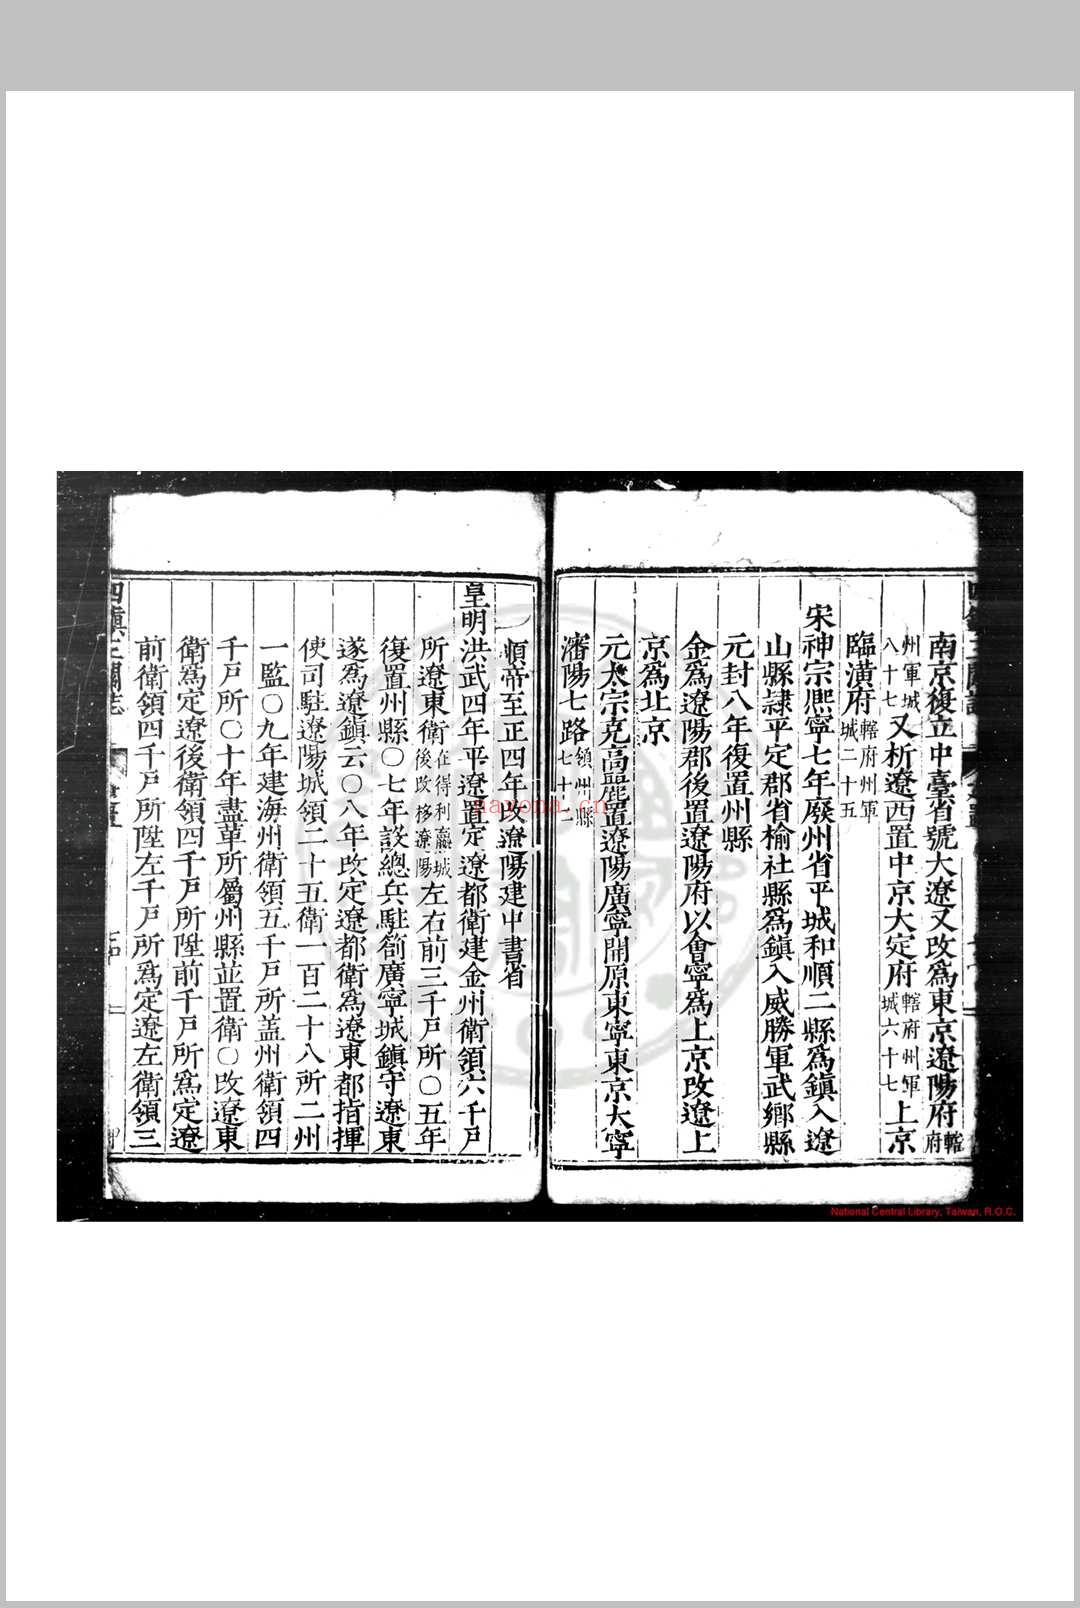 南京復立中臺省號大遼又改爲東京遼陽府轄府
州軍城八十七又析遼西置中京大定府轄府州軍城六十七上京
臨潢府轄府州軍城二十五
宋神宗熈寧七年廢州省平城和順二縣爲鎮入遼
山縣隷平定郡省榆社縣爲鎮入威勝軍武鄉縣
元封八年復置州縣
金爲遼陽郡後置遼陽府以會寧爲上京改遼上
京爲北京
元太宗克高麗置遼陽廣寧開原東寧東京大寧
瀋陽七路領州縣七十二
順帝至正四年改遼陽建中書省
皇明洪武四年平遼置定遼都衛建金州衛領六千戸
所遼東衛在得利嬴城後改移遼陽左右前三千戸所〇五年
復置州縣〇七年設總兵駐劄廣寧城鎮守遼東
遂爲遼鎮云〇八年改定遼都衛爲遼東都指揮
使司駐遼陽城領二十五衛一百二十八所二州
一監〇九年建海州衛領五千戸所盖州衛領四
千戸所〇十年盡革所屬州縣並置衛〇改遼東
衛爲定遼後衛領四千戸所陞前千戸所爲定遼
前衛領四千戸所陞左千戸所爲定遼左衛領三
四鎮三關志
nayona.cn
National Central Library, Taiwan, R.O.C.